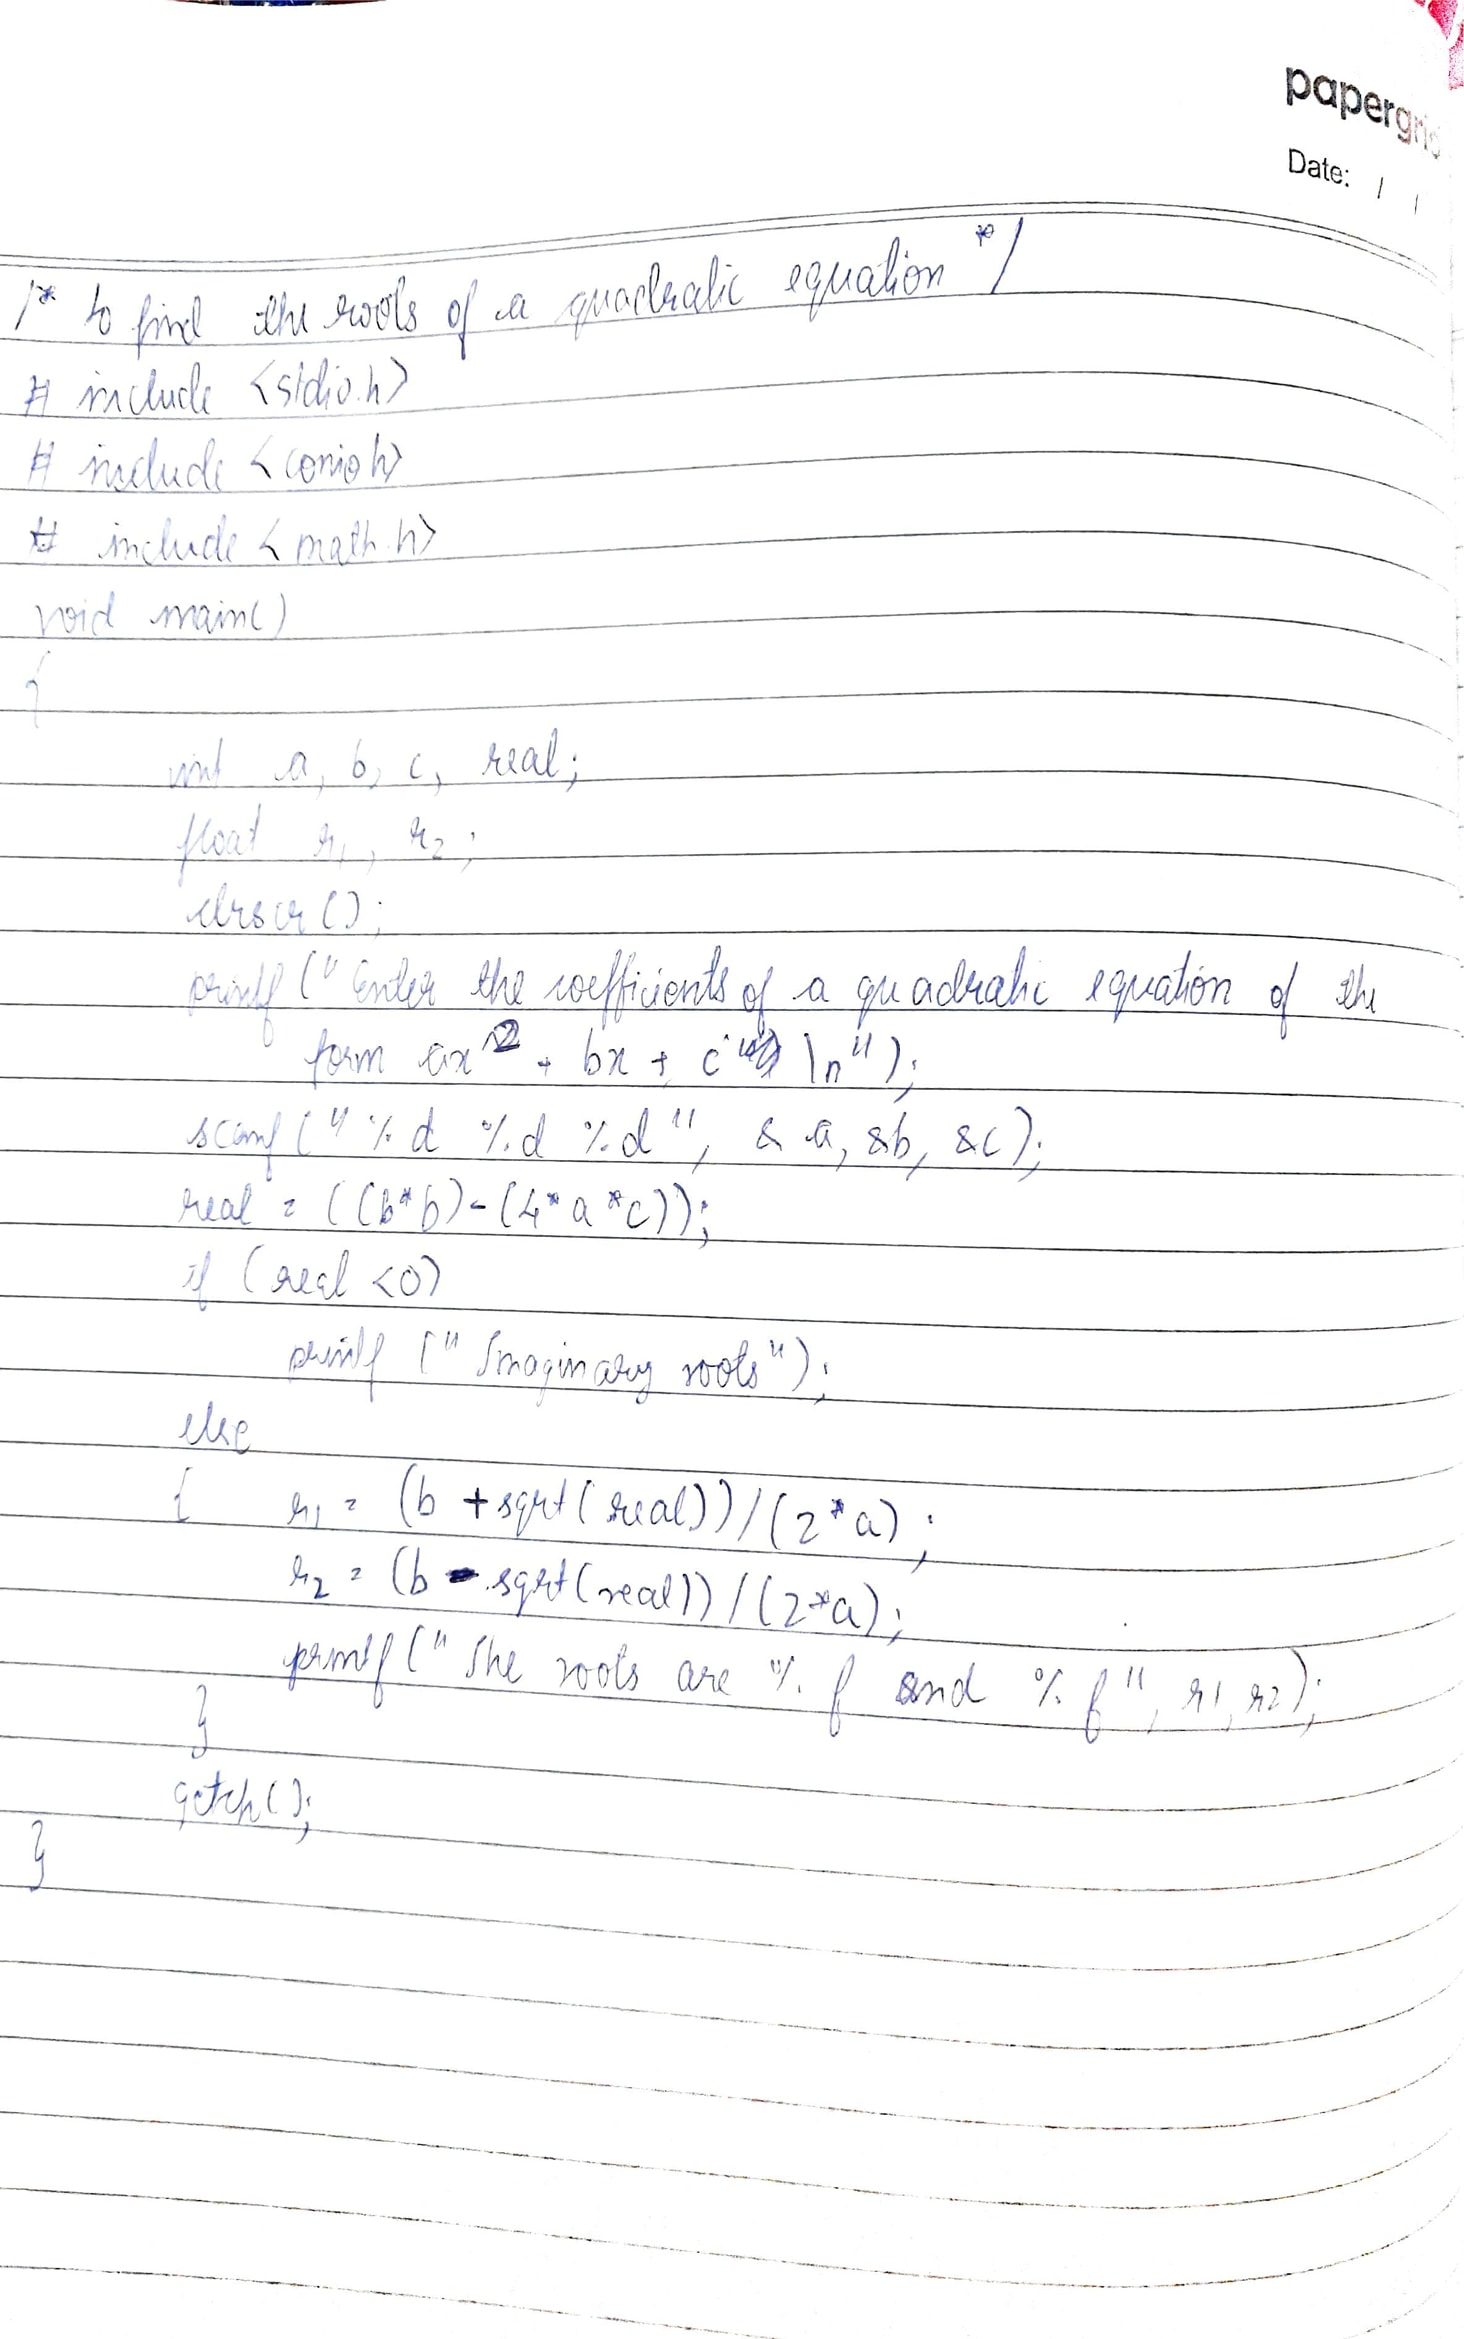 papergrid
Date: / /
/* to find the roots of a quadratic equation */
# include <stdio.h>
# include <conio.h>
# include <math.h>
void main()
{
int a, b, c, real;
float r1, r2;
clrscr();
printf ("Enter the coefficients of a quadratic equation of the
form ax^2 + bx + c \n");
scanf ("%d %d %d", &a, &b, &c);
real = ((b*b)-(4*a*c));
if (real <0)
printf ("Imaginary roots");
else
{ r1 = (b +sqrt(real))/(2*a);
r2 = (b - sqrt(real))/(2*a);
printf ("The roots are %f and %f", r1, r2);
}
getch();
}